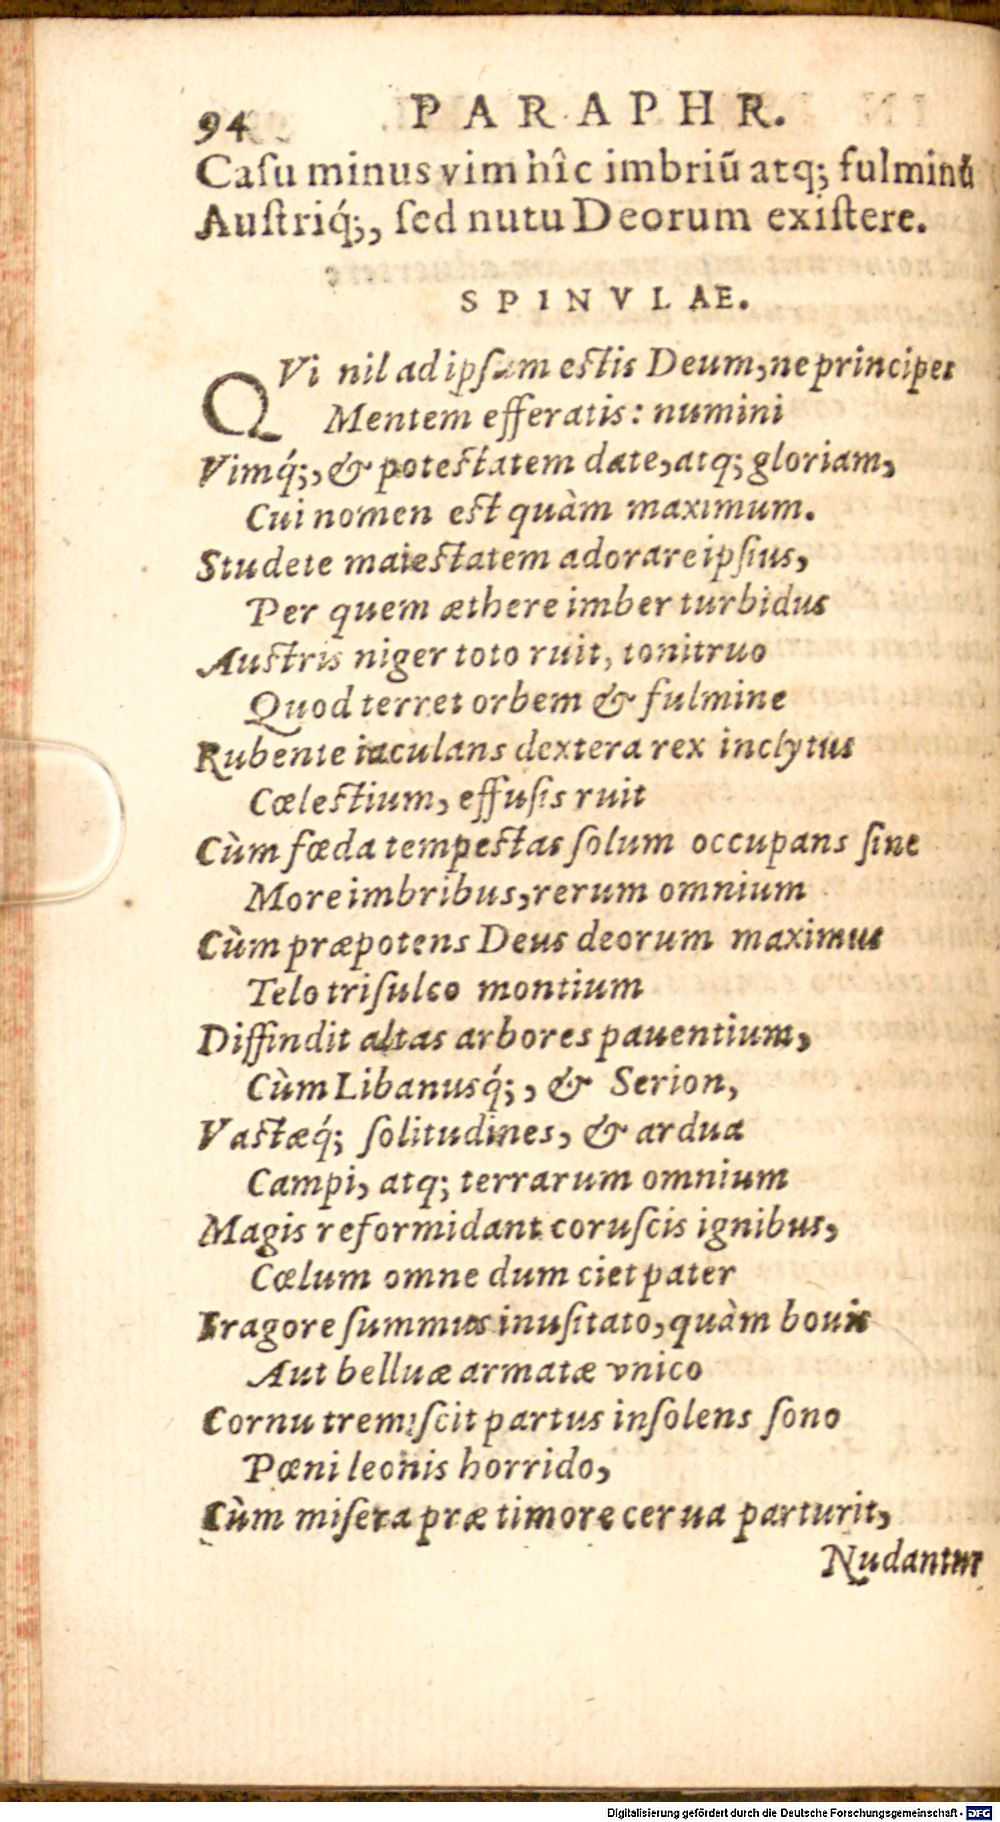 94 PARAPHR.
Caſu minus vim hîc imbriũ atq; fulminũ
Auſtriq́;, ſed nutu Deorum exiſtere.
SPINVLAE.
QVi nil ad ipſum eſtis Deum, ne principes
Mentem efferatis: numini
Vimq́;, & poteſtatem date, atq; gloriam,
Cui nomen eſt quàm maximum.
Studete maieſtatem adorare ipſius,
Per quem æthere imber turbidus
Auſtris niger toto ruit, tonitruo
Quod terret orbem & fulmine
Rubente iaculans dextera rex inclytus
Cœleſtium, effuſis ruit
Cùm fœda tempeſtas ſolum occupans ſine
More imbribus, rerum omnium
Cùm præpotens Deus deorum maximus
Telo triſulco montium
Diffindit altas arbores pauentium,
Cùm Libanusq́;, & Serion,
Vaſtæq́; ſolitudines, & ardua
Campi, atq; terrarum omnium
Magis reformidant coruſcis ignibus,
Cœlum omne dum ciet pater
Fragore ſummus inuſitato, quàm bouis
Aut belluæ armatæ vnico
Cornu tremiſcit partus inſolens ſono
Pœni leonis horrido,
Cùm miſera præ timore cerua parturit,
Nudantur
Digitalisierung gefördert durch die Deutsche Forschungsgemeinschaft - DFG